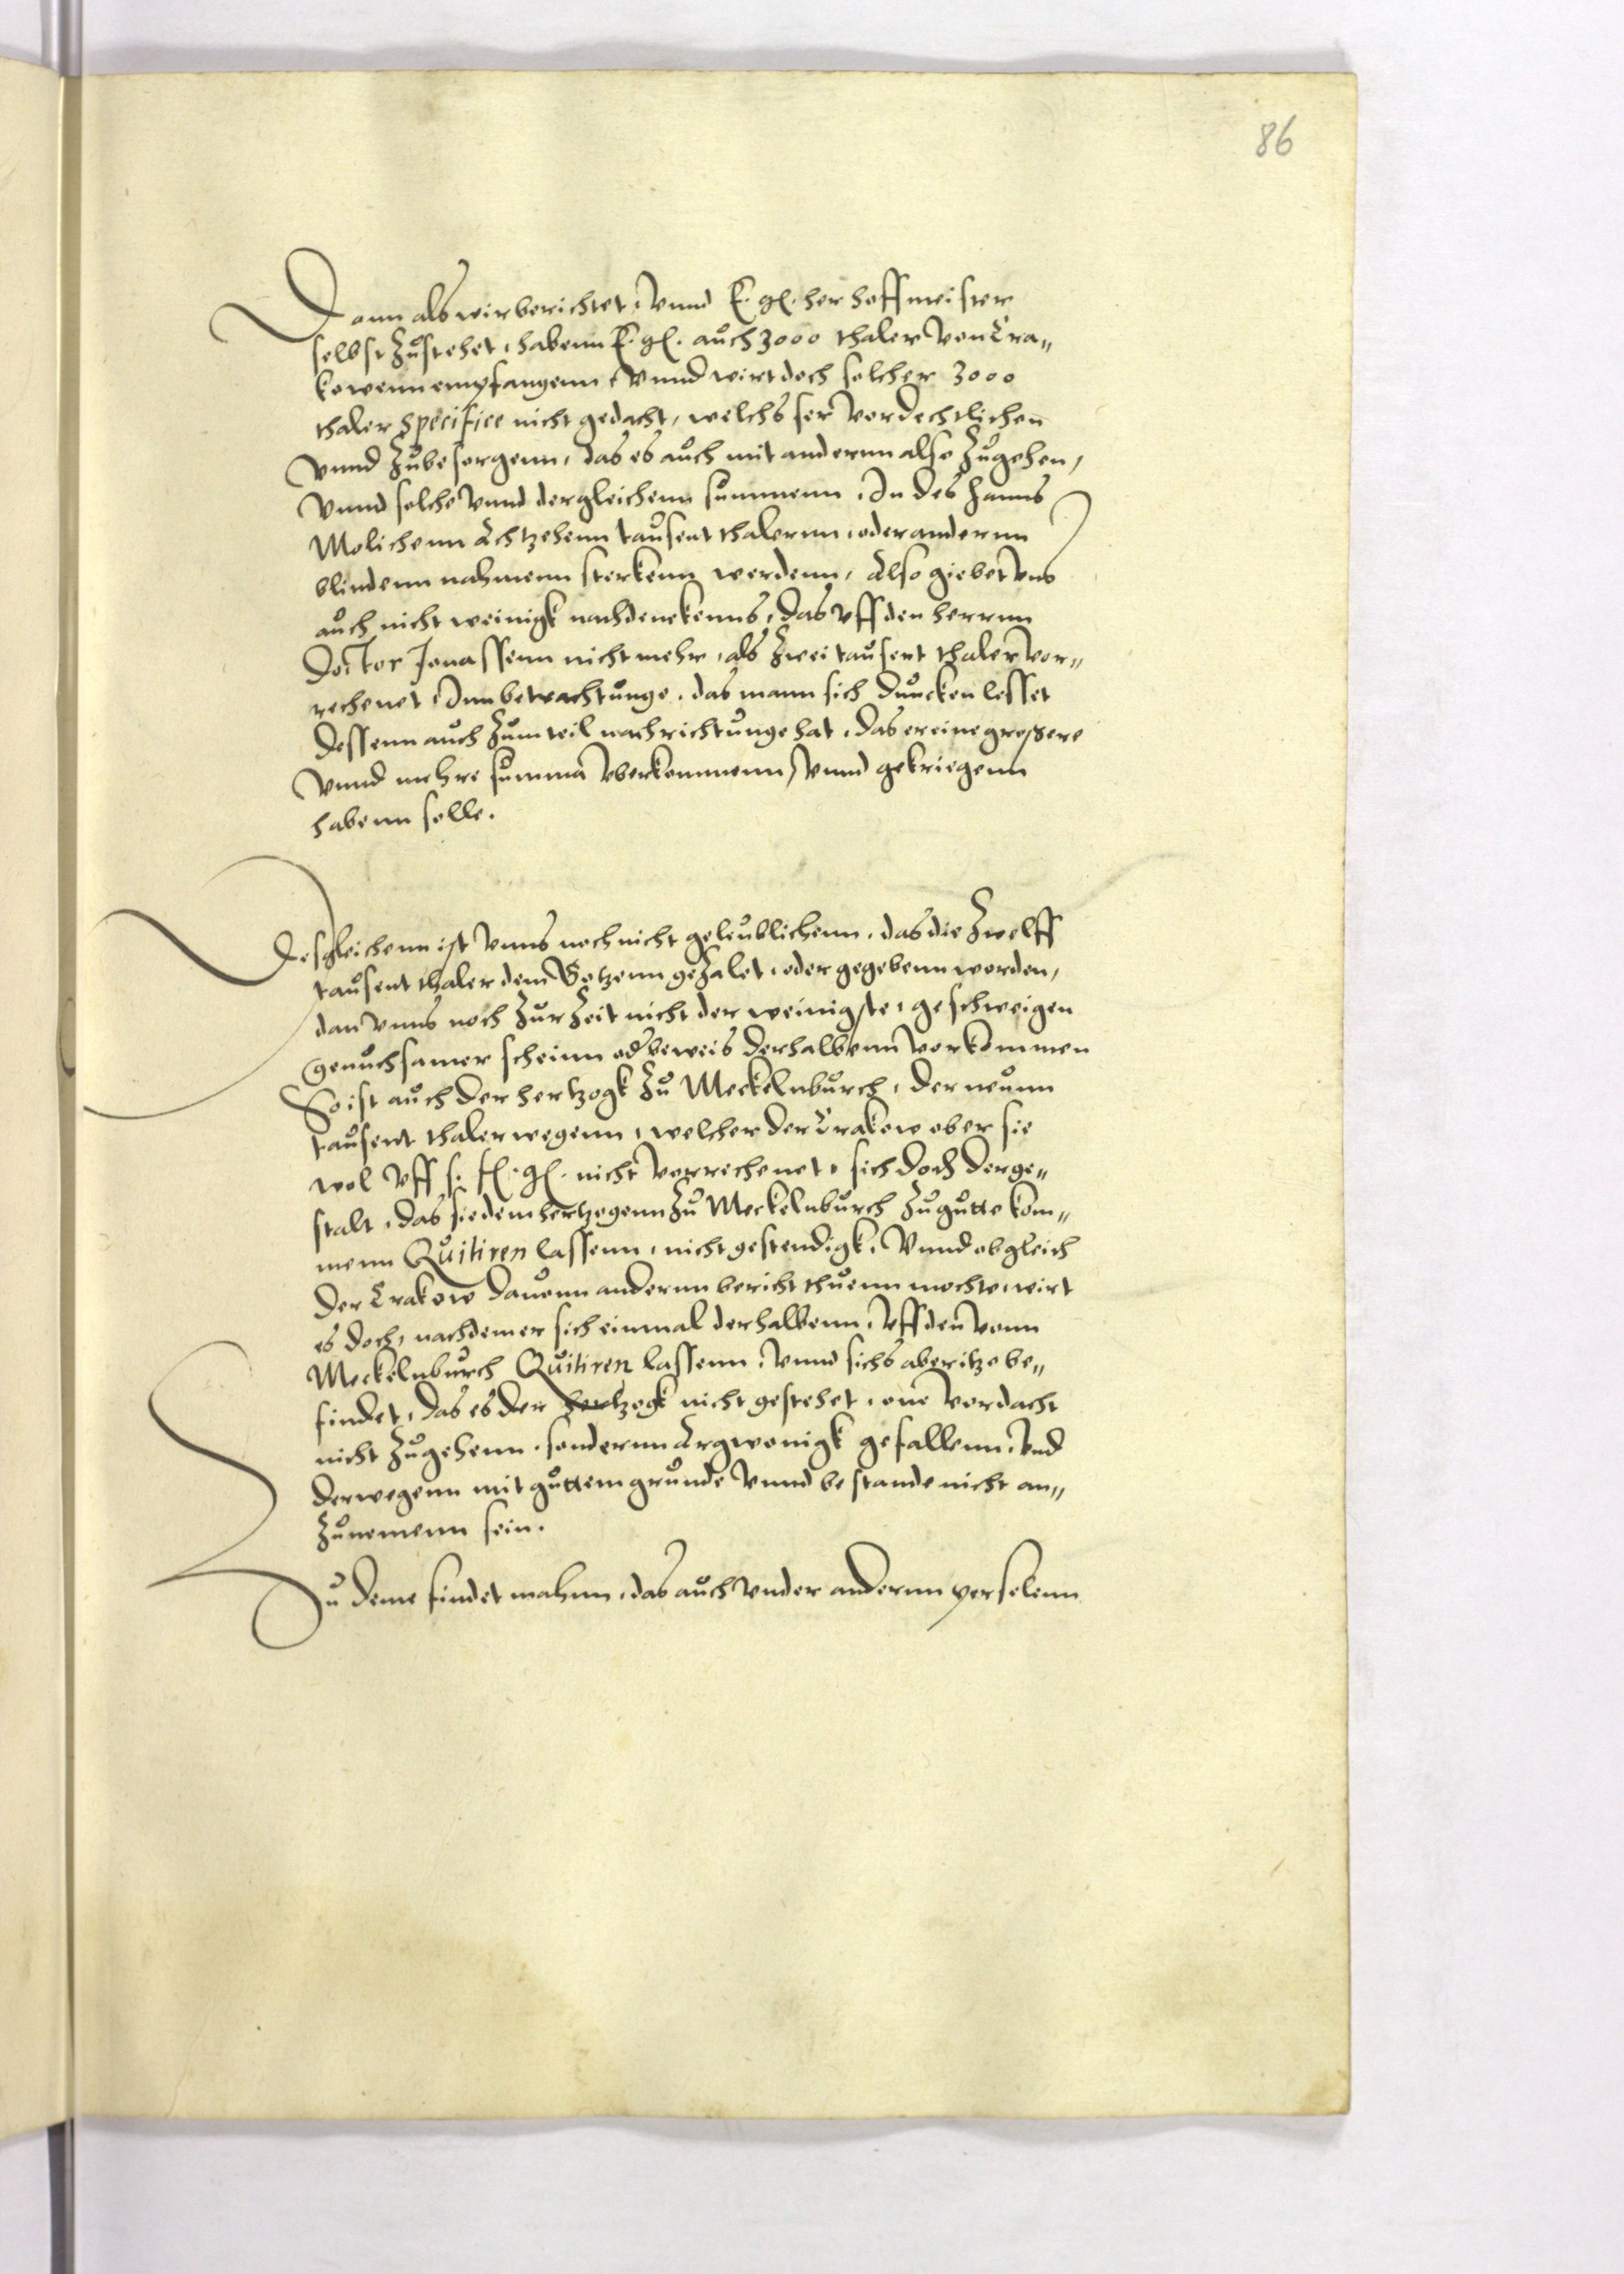 86
Dann als wir berichtet, vnnd E. gl. her hoffmeister
selbst zustehet, habenn E. gl. auch 3000 thaler von Cra„
kowenn empfangenn, vnnd wirt doch solcher 3000
thaler specifice nicht gedacht, welchs ser vordechtlichen
vnnd zubesorgenn, das es auch mit andernn also zugehen,
vnnd solche vnnd dergleichenn summenn, In des Hanns
Molichenn Achtzehenn tausent thalernn, oder andernn
blindenn nahmenn sterkenn werdenn, Also giebet vns
auch nicht weinigk nachdenckenns, das vff den herrnn
Doctor Jonassenn nicht mehr, als zwei tausent thaler vor„
rechenet, Inn betrachtunge, das mann sich duncken lesset
dessenn auch zum teil nachrichtunge hat, das er eine großere
vnnd mehre summa vberkommenn, vnnd gekriegenn
habenn solle.
Desgleichenn ist vnns noch nicht geleublichenn, das die zwelff
tausent thaler dem Gotzenn gezalet, oder gegebenn worden,
dan vnns noch zur zeit nicht der weinigste, geschweigen
genuchsamer scheinn od beweis derhalbenn vorkommen
So ist auch der hertzogk zu Meckelnburch, der neunn
tausent thaler wegenn, welcher der Crakow ober sie
wol vff s. fl. gl. nicht verrechenet, sich doch derge„
stalt, das sie dem hertzogenn zu Meckelnburch zugutte kom„
menn Quitiren lassenn, nicht gestendigk, Vnnd obgleich
der Crakow dauonn andernn bericht thuenn mochte, wirt
es doch, nachdem er sich einmal derhalbenn, vff den vonn
Meckelnburch Quitiren lassenn, vnnd sichs aber itzo be„
findet, das es der hertzogk nicht gestehet, one vordacht
nicht zugehenn, sondernn Argwonigk gefallenn, Vnd
derwegenn mit guttem grunde vnnd bestande nicht an„
zunemenn sein.
Zu deme findet mahnn, das auch vnder andernn perselenn